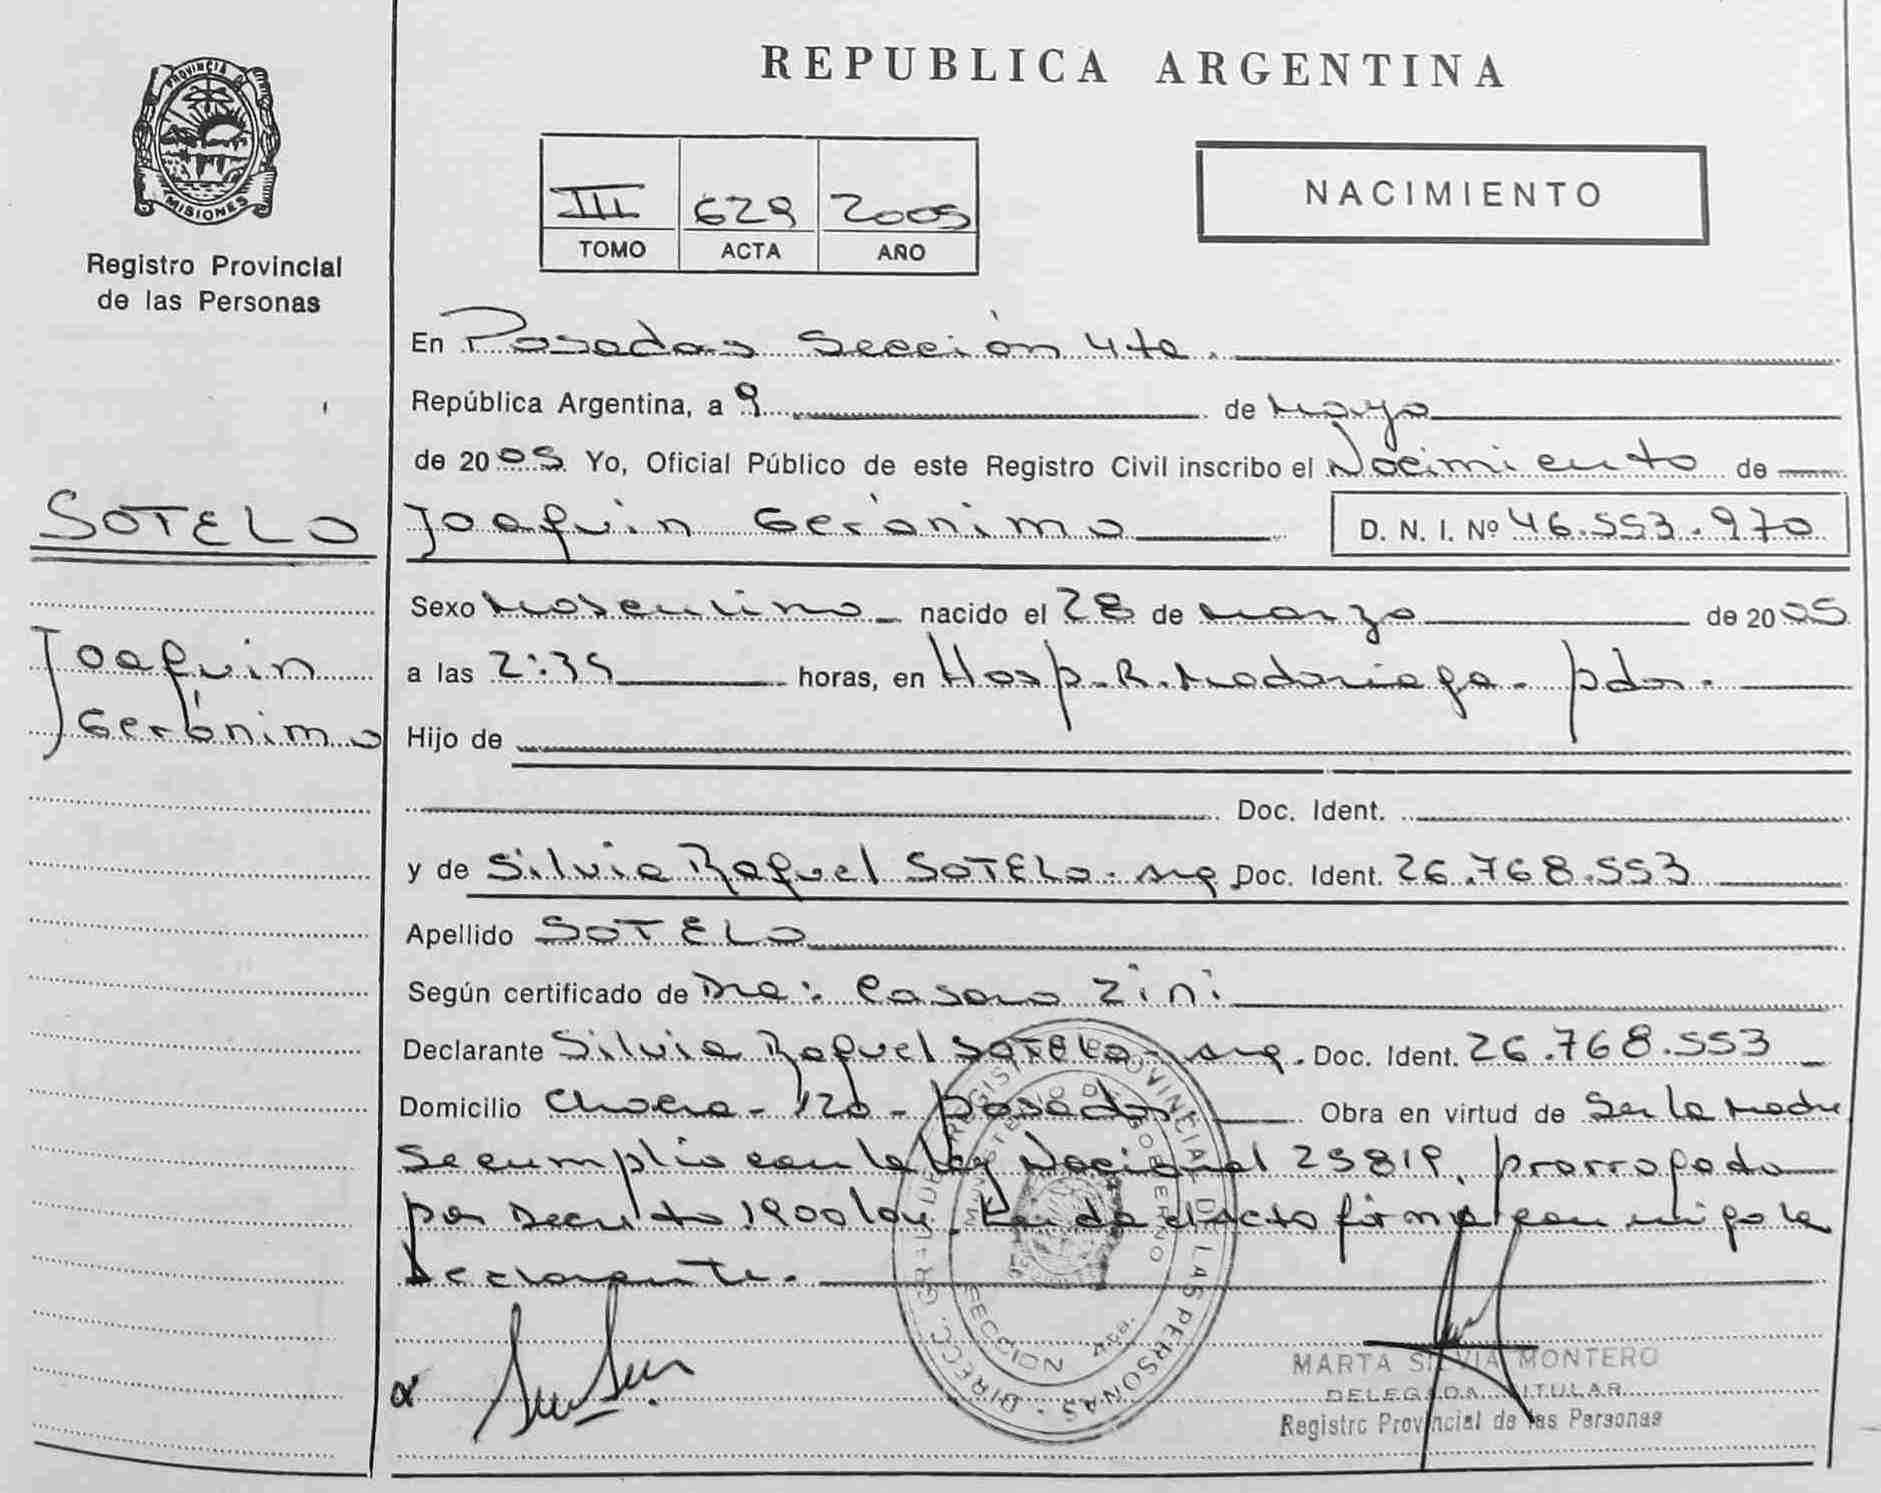 PROVINCIA DE
MISIONES
Registro Provincial
de las Personas
SOTELO
Joaquin
Gerónimo
REPUBLICA ARGENTINA
III 629 2005
TOMO ACTA AÑO
NACIMIENTO
En Posadas Sección 4ta.
República Argentina, a 9 de Mayo
de 2005 Yo, Oficial Público de este Registro Civil inscribo el Nacimiento de
Joaquin Gerónimo D. N. I. Nº 46.553.970
Sexo Masculino nacido el 28 de Marzo de 2005
a las 2:35 horas, en Hosp. R. Madariaga - pdas.
Hijo de
Doc. Ident.
y de Silvia Raquel SOTELO - arg. Doc. Ident. 26.768.553
Apellido SOTELO
Según certificado de Dra: Casaro Zini
Declarante Silvia Raquel SOTELO - arg. Doc. Ident. 26.768.553
Domicilio Chaco - 120 - Posadas Obra en virtud de Ser la Madre
Se cumplio con la Ley Nacional 25819, prorrogada
por Decreto 1900/04. Leida el acto firma conmigo la
Declarante.
DIRECC. GRAL. DE REGISTRO PROVINCIAL DE LAS PERSONAS
MINISTERIO DE GOBIERNO
SECCION 4ta.
MARTA SILVIA MONTERO
DELEGADA TITULAR
Registro Provincial de las Personas